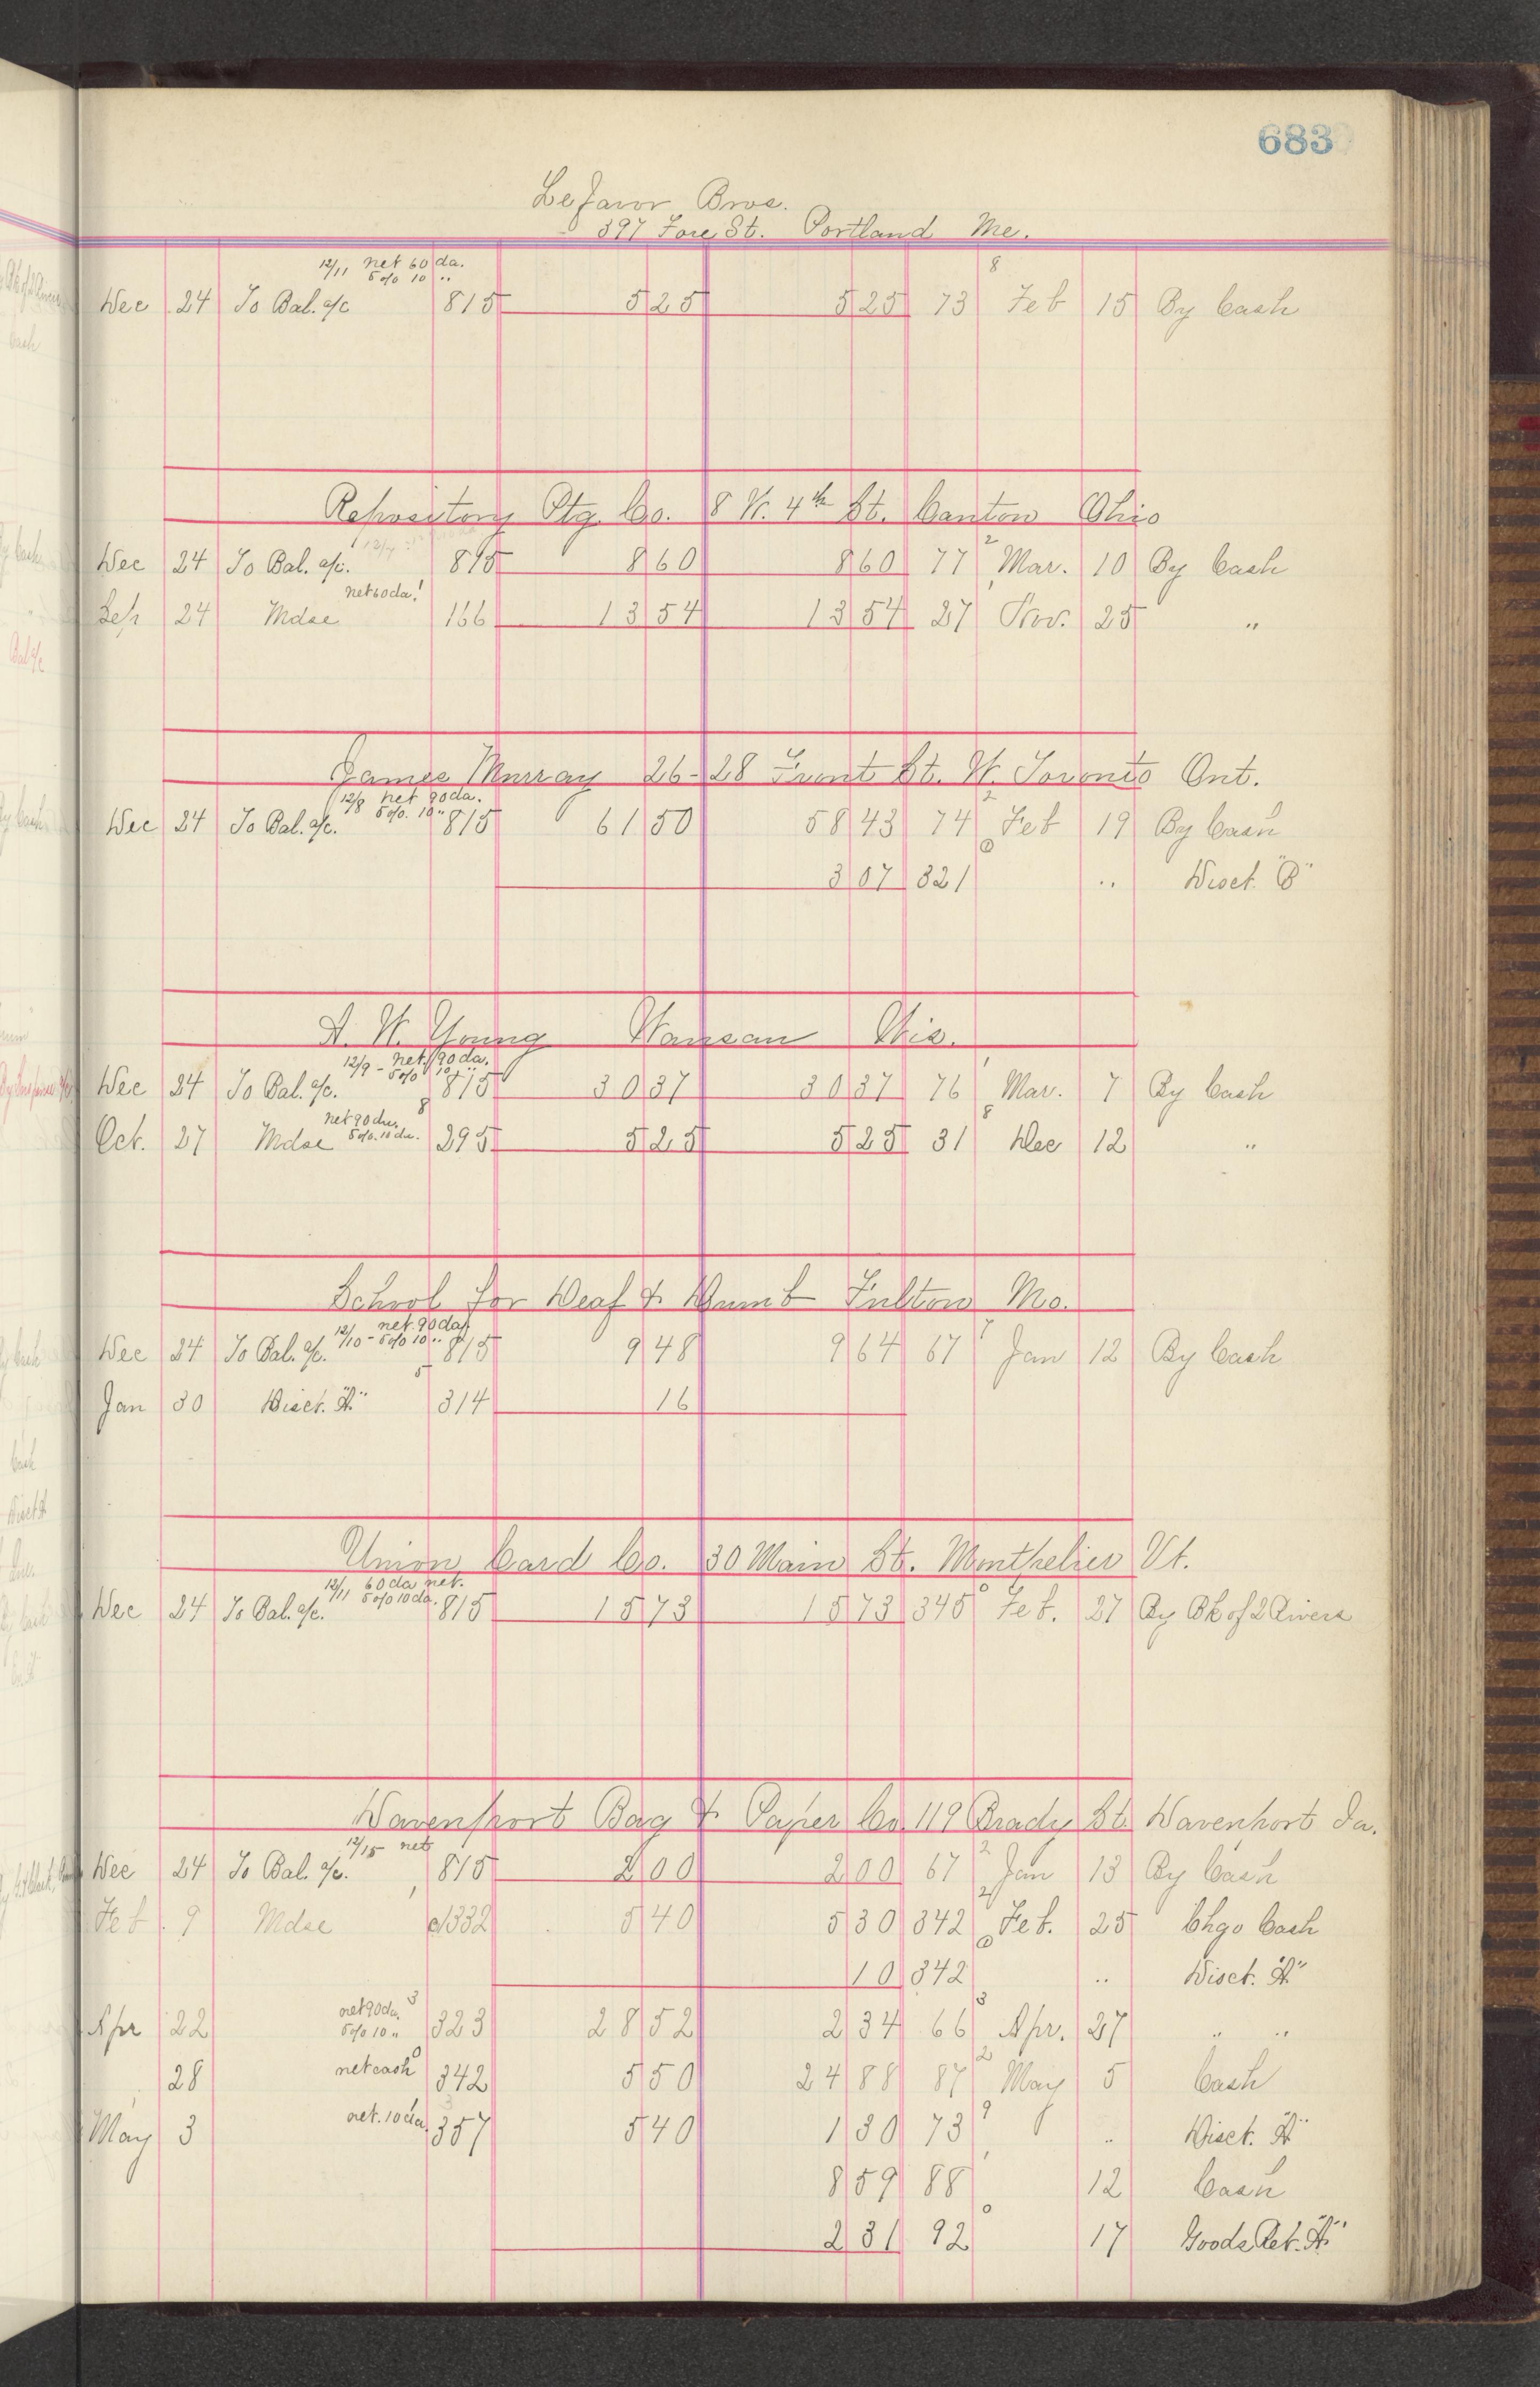 683
LeFavor Bros.
397 Fore St. Portland Me.
12/11 net 60 da.
5 o/o 10 "
8
Dec 24 To Bal. a/c 815 5 25 5 25 73 Feb 15 By Cash
Repository Ptg. Co. 8 W. 4th St. Canton Ohio
2
Dec 24 To Bal. a/c. 815 8 60 8 60 77 Mar. 10 By Cash
net 60 da. 1
Sep 24 Mdse 166 13 54 13 54 27 Nov. 25 "
James Murray 26-28 Front St. W. Toronto Ont.
12/8 net 90 da.
5 o/o. 10 " 2
Dec 24 To Bal. a/c. 815 61 50 58 43 74 Feb 19 By Cash
0
3 07 321 " Disct. "B"
A. W. Young Wausau Wis.
12/9 - net. 90 da.
5 o/o 10 " 1
Dec 24 To Bal. a/c. 815 30 37 30 37 76 Mar. 7 By Cash
net 90 da. 8 8
5 o/o. 10 da.
Oct. 27 Mdse 295 5 25 5 25 31 Dec 12 "
School for Deaf & Dumb Fulton Mo.
net. 90 da.
12/10 - 5 o/o 10 " 7
Dec 24 To Bal. a/c. 815 9 48 9 64 67 Jan 12 By Cash
5
Jan 30 Disct. "A" 314 16
Union Card Co. 30 Main St. Montpelier Vt.
12/11 60 da net.
5 o/o 10 da. 0
Dec 24 To Bal. a/c. 815 15 73 15 73 345 Feb. 27 By Bk of 2 Rivers
Davenport Bag & Paper Co. 119 Brady St. Davenport Ia.
12/15 net 2
Dec 24 To Bal. a/c. 815 2 00 2 00 67 Jan 13 By Cash
1 2
Feb 9 Mdse c/332 5 40 5 30 342 Feb. 25 Chgo Cash
0
10 342 " Disct. "A"
net 90 da. 3 3
5 o/o 10 "
Apr 22 323 28 52 2 34 66 Apr. 27 " "
net cash 0 2
28 342 5 50 24 88 87 May 5 Cash
net. 10 da. 9
May 3 357 5 40 1 30 73 " Disct. "A"
1
8 59 88 12 Cash
0
2 31 92 17 Goods Ret. "A"